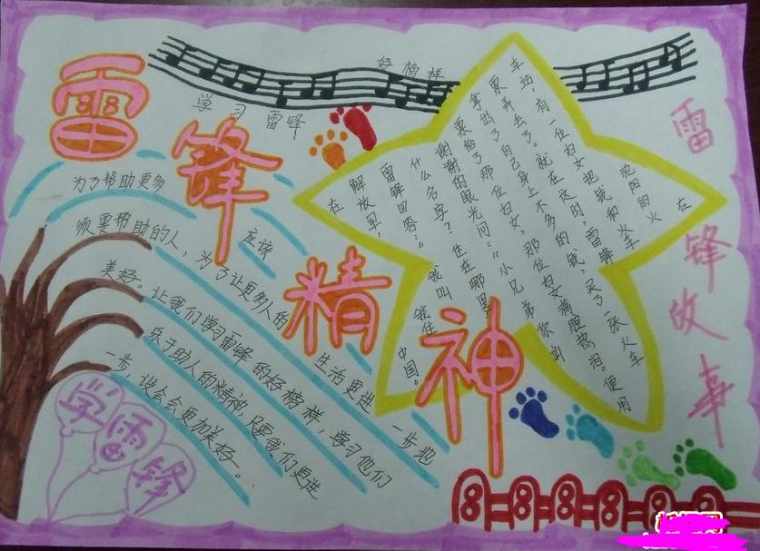 雷锋精神
学习雷锋
好榜样
为了帮助更多
应该
须要帮助的人，为了让更多人的生活更进一步地
美好。让我们学习雷锋的好榜样，学习他们
乐于助人的精神，只要我们更进
一步，社会会更加美好一。
学雷锋
雷锋故事
在
沈阳的火
车站，有一位妇女把钱和火车
票弄丢了。就在这时，雷锋
拿出了自己身上不多的钱，买了一张火车
票给了那位妇女，那位妇女满眶热泪。便用
谢谢的眼光问：“小兄弟你叫
什么名字？住在哪里
雷锋回答：“我叫
解放军，住
在中国。